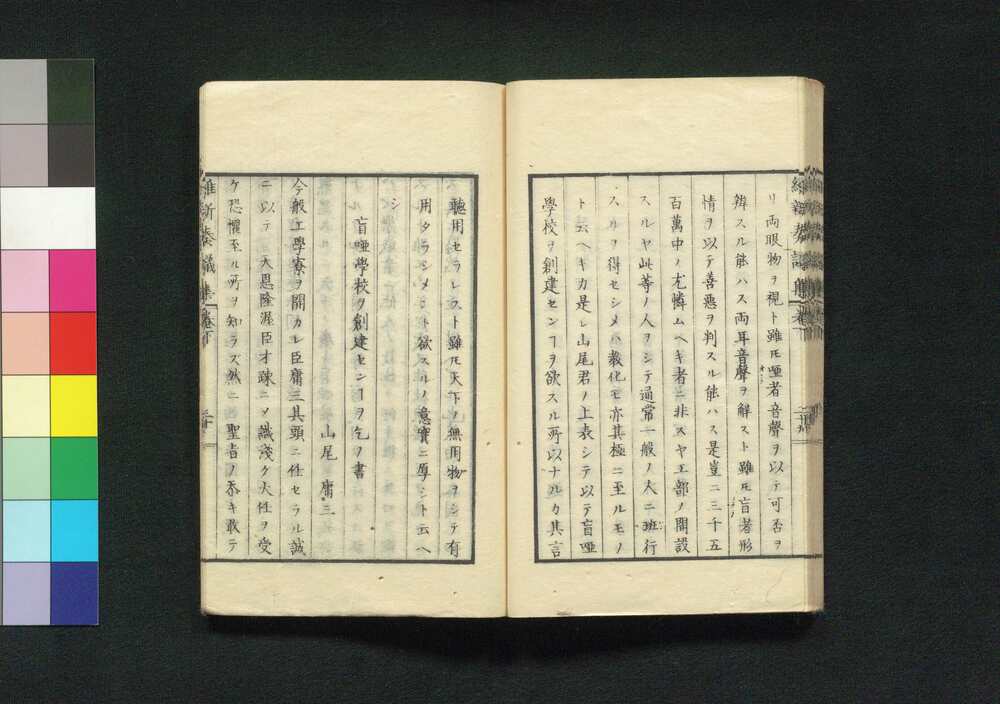 リ両眼物ヲ視ト雖𪜈啞者音聲ヲ以テ可否ヲ
辨スル能ハス両耳音聲ヲ解スト雖𪜈盲者形
情ヲ以テ善悪ヲ判スル能ハス是豈ニ三千五
百萬中ノ尤憐ムヘキ者ニ非スヤ工部ノ開設
スルヤ此等ノ人ヲシテ通常一般ノ人ニ班行
スルヲ得セシメハ教化モ亦其極ニ至ルモノ
ト云ヘキカ是レ山尾君ノ上表シテ以テ盲啞
學校ヲ創建センヿヲ欲スル所以ナルカ其言
聽用セラレスト雖𪜈天下ノ無用物ヲシテ有
用タラシメント欲スルノ意實ニ厚シト云ヘ
シ
盲啞學校ヲ創建センヿヲ乞ノ書
山尾庸三
今般工學寮ヲ開カレ臣庸三其頭ニ任セラル誠
ニ以テ大恩隆渥臣才疎ニメ識淺ク大任ヲ受
ケ恐懼至ル所ヲ知ラズ然ニ聖旨ノ忝キ敢テ
維新奏議集
卷下